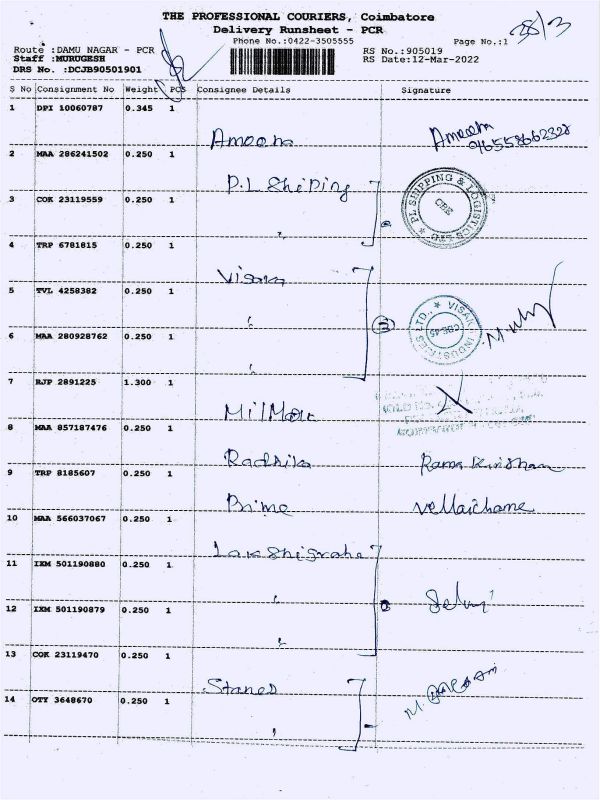 THE PROFESSIONAL COURIERS, Coimbatore
Delivery Runsheet - PCR
Phone No.:0422-3505555
Page No.:1
28/3
Route :DAMU NAGAR - PCR
RS No.:905019
Staff :MURUGESH
RS Date:12-Mar-2022
DRS No. :DCJB90501901
S No Consignment No Weight PCS Consignee Details Signature
1 DPI 10060787 0.345 1
Ameena
2 MAA 286241502 0.250 1
P.L Shiping
PL SHIPPING & LOGISTICS LTD
CBE
3 COK 23119559 0.250 1
"
4 TRP 6781815 0.250 1
Visaka
5 TVL 4258382 0.250 1
"
VISAKA INDUSTRIES LTD.,
CBE-45
6 MAA 280928762 0.250 1
"
7 RJP 2891225 1.300 1
8 MAA 857187476 0.250 1
Radhika
9 TRP 8185607 0.250 1
Prime Vellaichame
10 MAA 566037067 0.250 1
11 IXM 501190880 0.250 1
"
Selvi
12 IXM 501190879 0.250 1
"
13 COK 23119470 0.250 1
Stanes
14 OTY 3648670 0.250 1
"